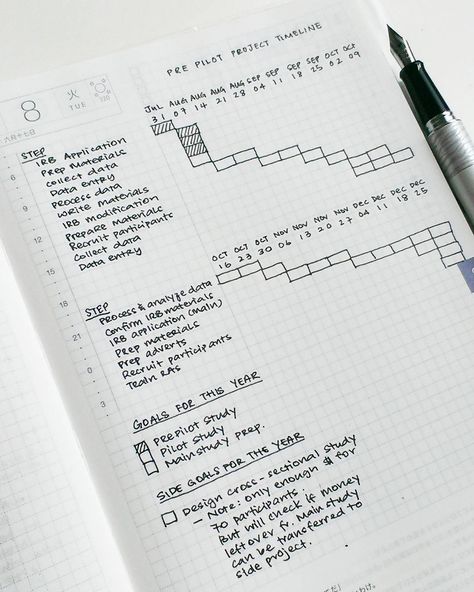 PRE PILOT PROJECT TIMELINE
JUL AUG AUG AUG AUG SEP SEP SEP SEP OCT OCT
31 07 14 21 28 04 11 18 25 02 09
8 火 TUE
6
9
12
15
18
21
0
3
STEP
IRB Application
Prep Materials
Collect data
Data entry
Process data
Write materials
IRB modification
Prepare Materials
Recruit participants
Collect data
Data entry
OCT OCT OCT NOV NOV NOV NOV DEC DEC DEC DEC
16 23 30 06 13 20 27 04 11 18 25
STEP
Process & analyze data
Confirm IRB materials
IRB application (main)
Prep materials
Prep adverts
Recruit participants
Train RAs
GOALS FOR THIS YEAR
Pre Pilot Study
Pilot Study
Main study prep.
SIDE GOALS FOR THE YEAR
Design cross-sectional study
- Note: only enough $ for
70 participants.
But will check if money
left over fr. Main study
can be transferred to
side project.